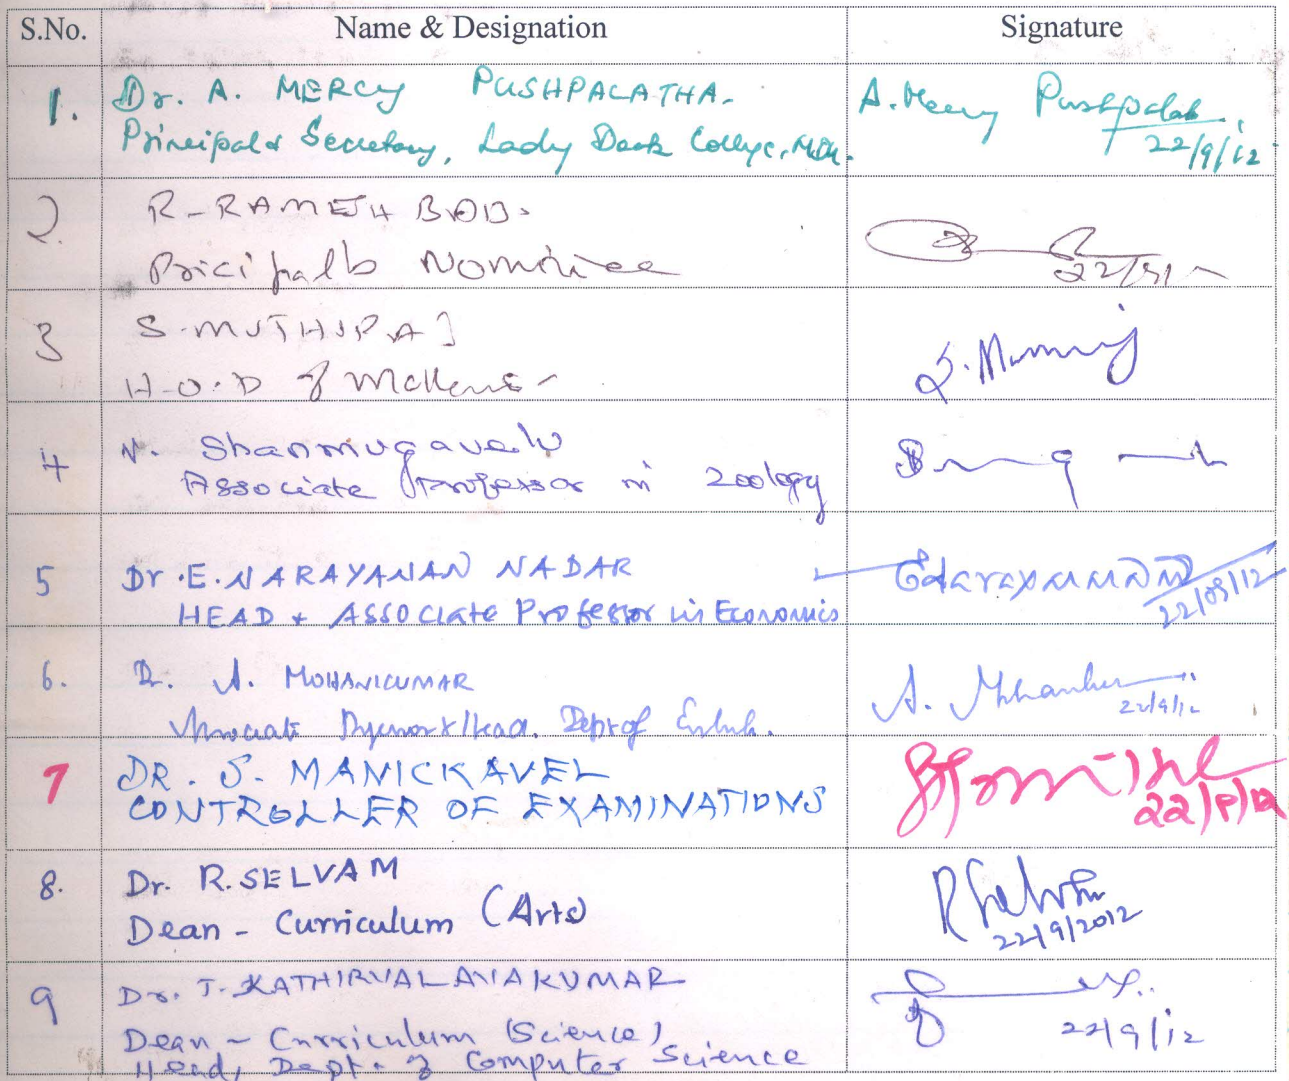 S.No. Name & Designation Signature
1. Dr. A. MERCY PUSHPALATHA. A. Mercy Pushpalatha
Principal & Secretary, Lady Doak College, Mdu. 22/9/12
2. R-RAMESH BABU
Pricipal's Nominee 22/9/12
3 S. MUTHURAJ
H.O.D of S. Muthuraj
4 N. Shanmugavelu
Associate Professor in Zoology
5 Dr. E. NARAYANAN NADAR
HEAD & Associate Professor in Economics 22/09/12
6. Dr. A. MOHANKUMAR A. Mohankumar
Associate Professor & Head. Dept of English. 22/9/12
7 DR. S. MANICKAVEL
CONTROLLER OF EXAMINATIONS 22/9/12
8. Dr. R. SELVAM R Selvam
Dean - Curriculum (Arts) 22/9/2012
9 Dr. T. KATHIRVALAVAKUMAR
Dean - Curriculum (Science) 22/9/12
Head, Dept. of Computer Science